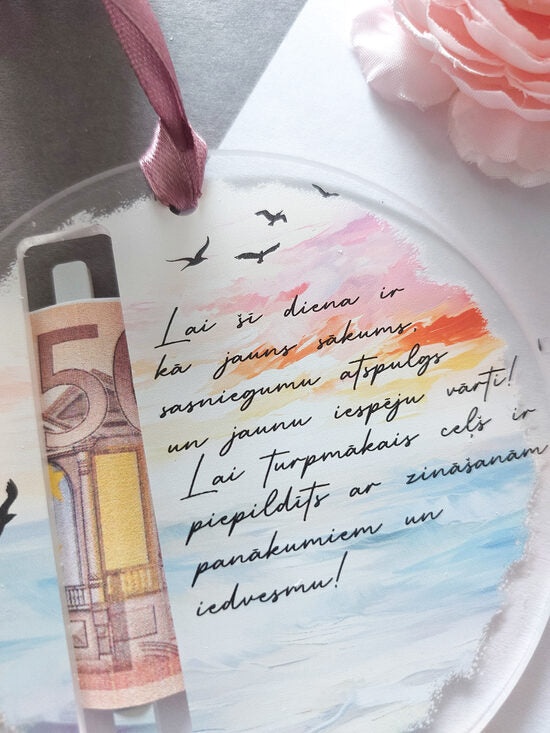 50
Lai šī diena ir
kā jauns sākums,
sasniegumu atspulgs
un jaunu iespēju vārti!
Lai turpmākais ceļš ir
piepildīts ar zināšanām
panākumiem un
iedvesmu!